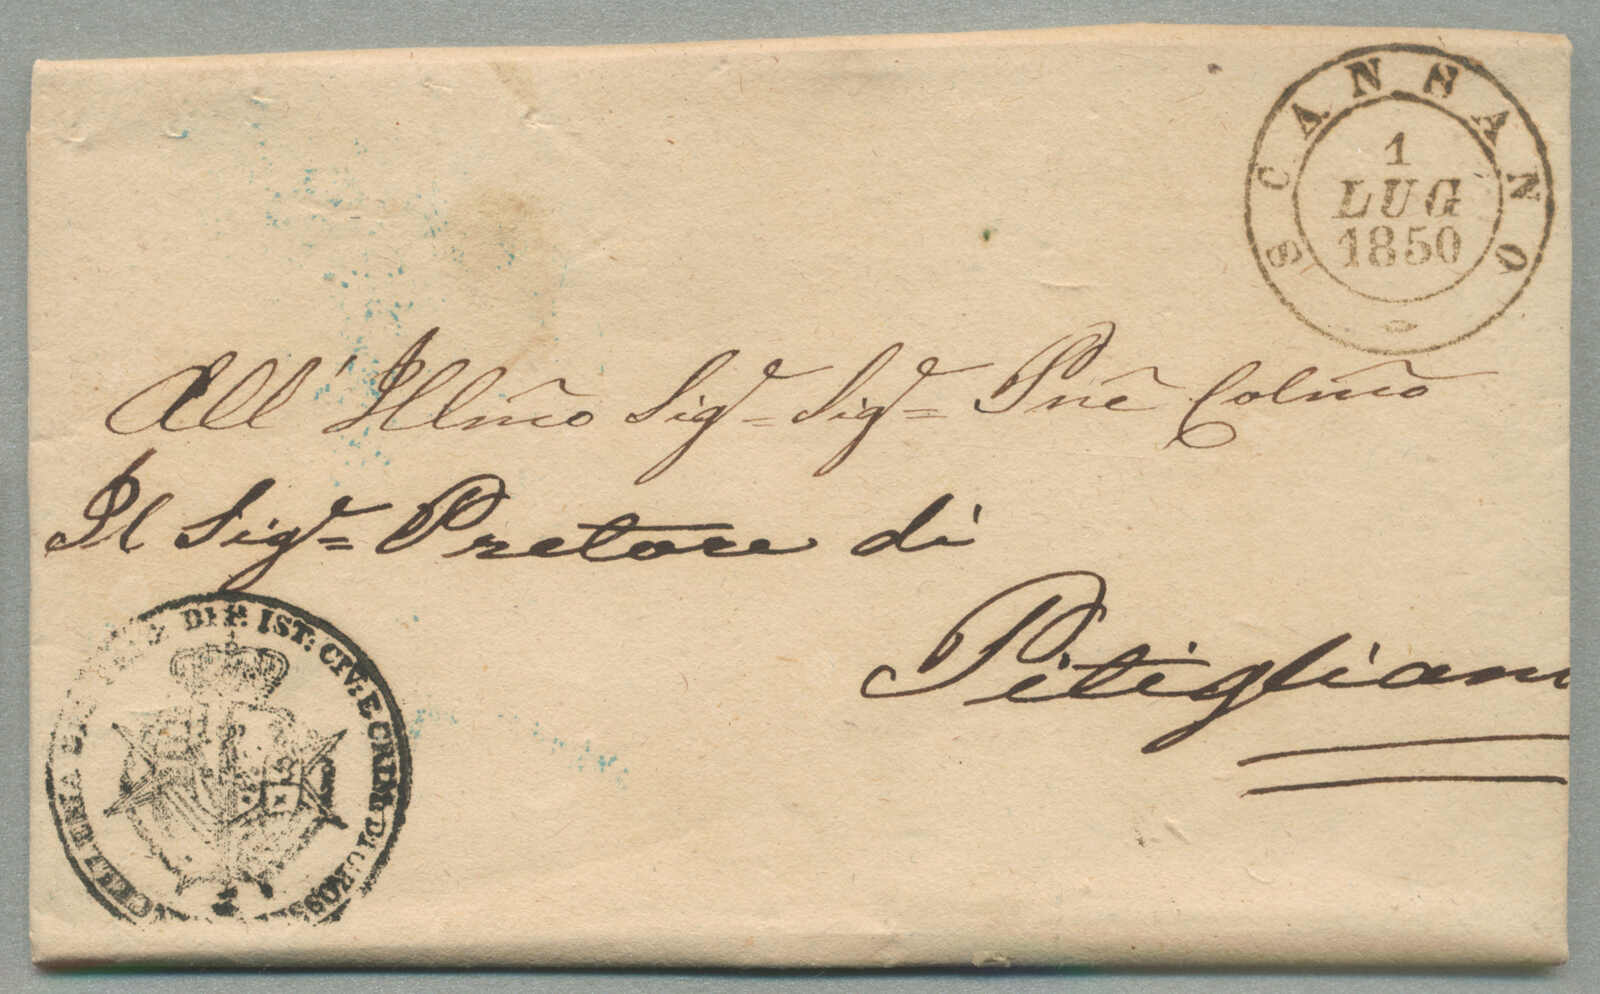 SCANSANO
1
LUG
1850
All' Illm̃o Sigr= Sigr= Prẽ Colm̃o
Il Sigr= Pretore di
Pitiglian
DI P. IST: CIV: E CRIM: DI GROSS